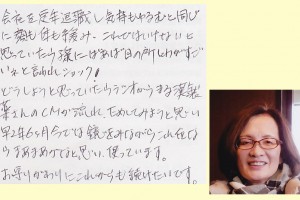 会社を定年退職し気持もゆるむと同じ
に麺も体も緩み、これではいけないと
思っていたら孫にばあば目の所しわがすご
いネと言われショック!
どうしようと思っていたらラジオからまるで漢
葉さんのCMが流れ、ためしてみようと思い
早2年6ヶ月今では鏡をみながらこの位な
らまあまあかなと思い、使っています。
お守りがわりにこれからも続けたいです。